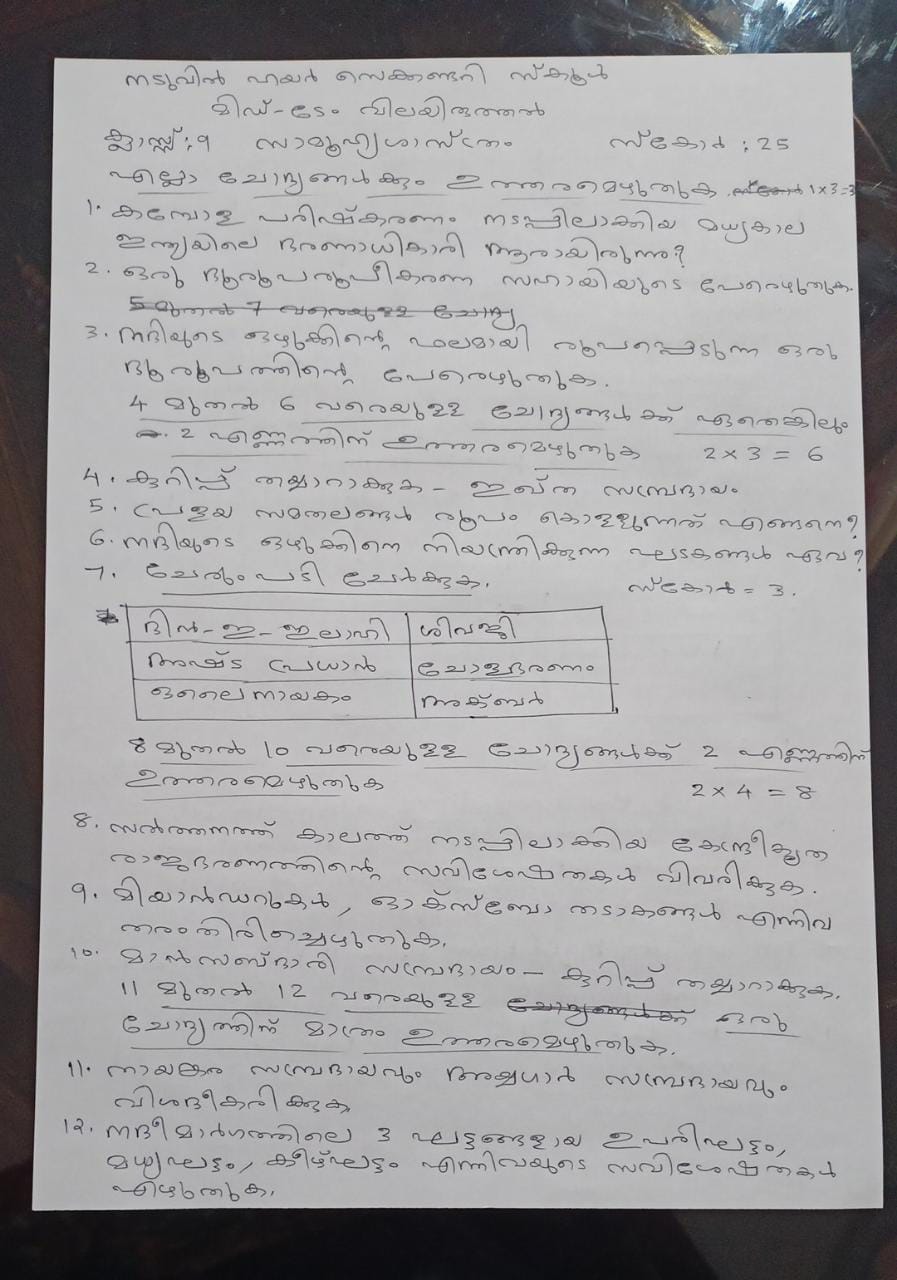 നടുവിൽ ഹയർ സെക്കണ്ടറി സ്കൂൾ
മിഡ്-ടേം വിലയിരുത്തൽ
ക്ലാസ്സ് : 9 സാമൂഹ്യശാസ്ത്രം സ്കോർ : 25
എല്ലാ ചോദ്യങ്ങൾക്കും ഉത്തരമെഴുതുക 1×3=3
1. കമ്പോള പരിഷ്കരണം നടപ്പിലാക്കിയ മധ്യകാല
ഇന്ത്യയിലെ ഭരണാധികാരി ആരായിരുന്നു?
2. ഒരു ഭൂരൂപരൂപീകരണ സഹായിയുടെ പേരെഴുതുക.
5 മുതൽ 7 വരെയുള്ള ചോദ്യ
3. നദിയുടെ ഒഴുക്കിന്റെ ഫലമായി രൂപപ്പെടുന്ന ഒരു
ഭൂരൂപത്തിന്റെ പേരെഴുതുക.
4 മുതൽ 6 വരെയുള്ള ചോദ്യങ്ങൾക്ക് ഏതെങ്കിലും
2 എണ്ണത്തിന് ഉത്തരമെഴുതുക 2×3 = 6
4. കുറിപ്പ് തയ്യാറാക്കുക - ഇഖ്ത സമ്പ്രദായം
5. പ്രളയ സമതലങ്ങൾ രൂപം കൊള്ളുന്നത് എങ്ങനെ?
6. നദിയുടെ ഒഴുക്കിനെ നിയന്ത്രിക്കുന്ന ഘടകങ്ങൾ ഏവ?
7. ചേരുംപടി ചേർക്കുക. സ്കോർ = 3.
ദിൻ-ഇ-ഇലാഹി ശിവജി
അഷ്ട പ്രധാൻ ചോളഭരണം
ഒലൈനായകം അക്ബർ
8 മുതൽ 10 വരെയുള്ള ചോദ്യങ്ങൾക്ക് 2 എണ്ണത്തിന്
ഉത്തരമെഴുതുക 2×4 = 8
8. സൽത്തനത്ത് കാലത്ത് നടപ്പിലാക്കിയ കേന്ദ്രീകൃത
രാജഭരണത്തിന്റെ സവിശേഷതകൾ വിവരിക്കുക.
9. മിയാൻഡറുകൾ, ഓക്സ്ബോ തടാകങ്ങൾ എന്നിവ
തരംതിരിച്ചെഴുതുക.
10. മാൻസബ്ദാരി സമ്പ്രദായം - കുറിപ്പ് തയ്യാറാക്കുക.
11 മുതൽ 12 വരെയുള്ള ചോദ്യങ്ങൾക്ക് ഒരു
ചോദ്യത്തിന് മാത്രം ഉത്തരമെഴുതുക.
11. നായങ്കര സമ്പ്രദായവും അയ്യഗാർ സമ്പ്രദായവും
വിശദീകരിക്കുക
12. നദീമാർഗത്തിലെ 3 ഘട്ടങ്ങളായ ഉപരിഘട്ടം,
മധ്യഘട്ടം, കീഴ്ഘട്ടം എന്നിവയുടെ സവിശേഷതകൾ
എഴുതുക.